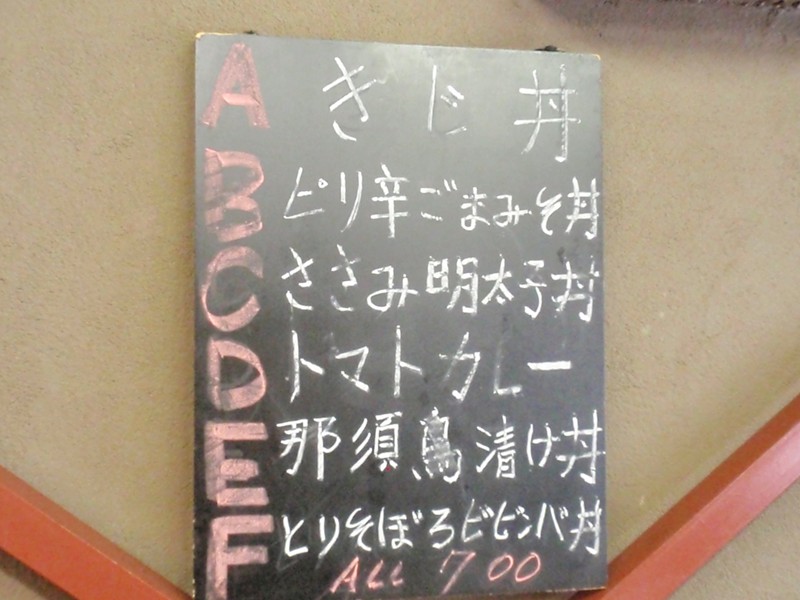 A きじ丼
B ピリ辛ごまみそ丼
C ささみ明太子丼
D トマトカレー
E 那須鳥漬け丼
F とりそぼろビビンバ丼
ALL 700